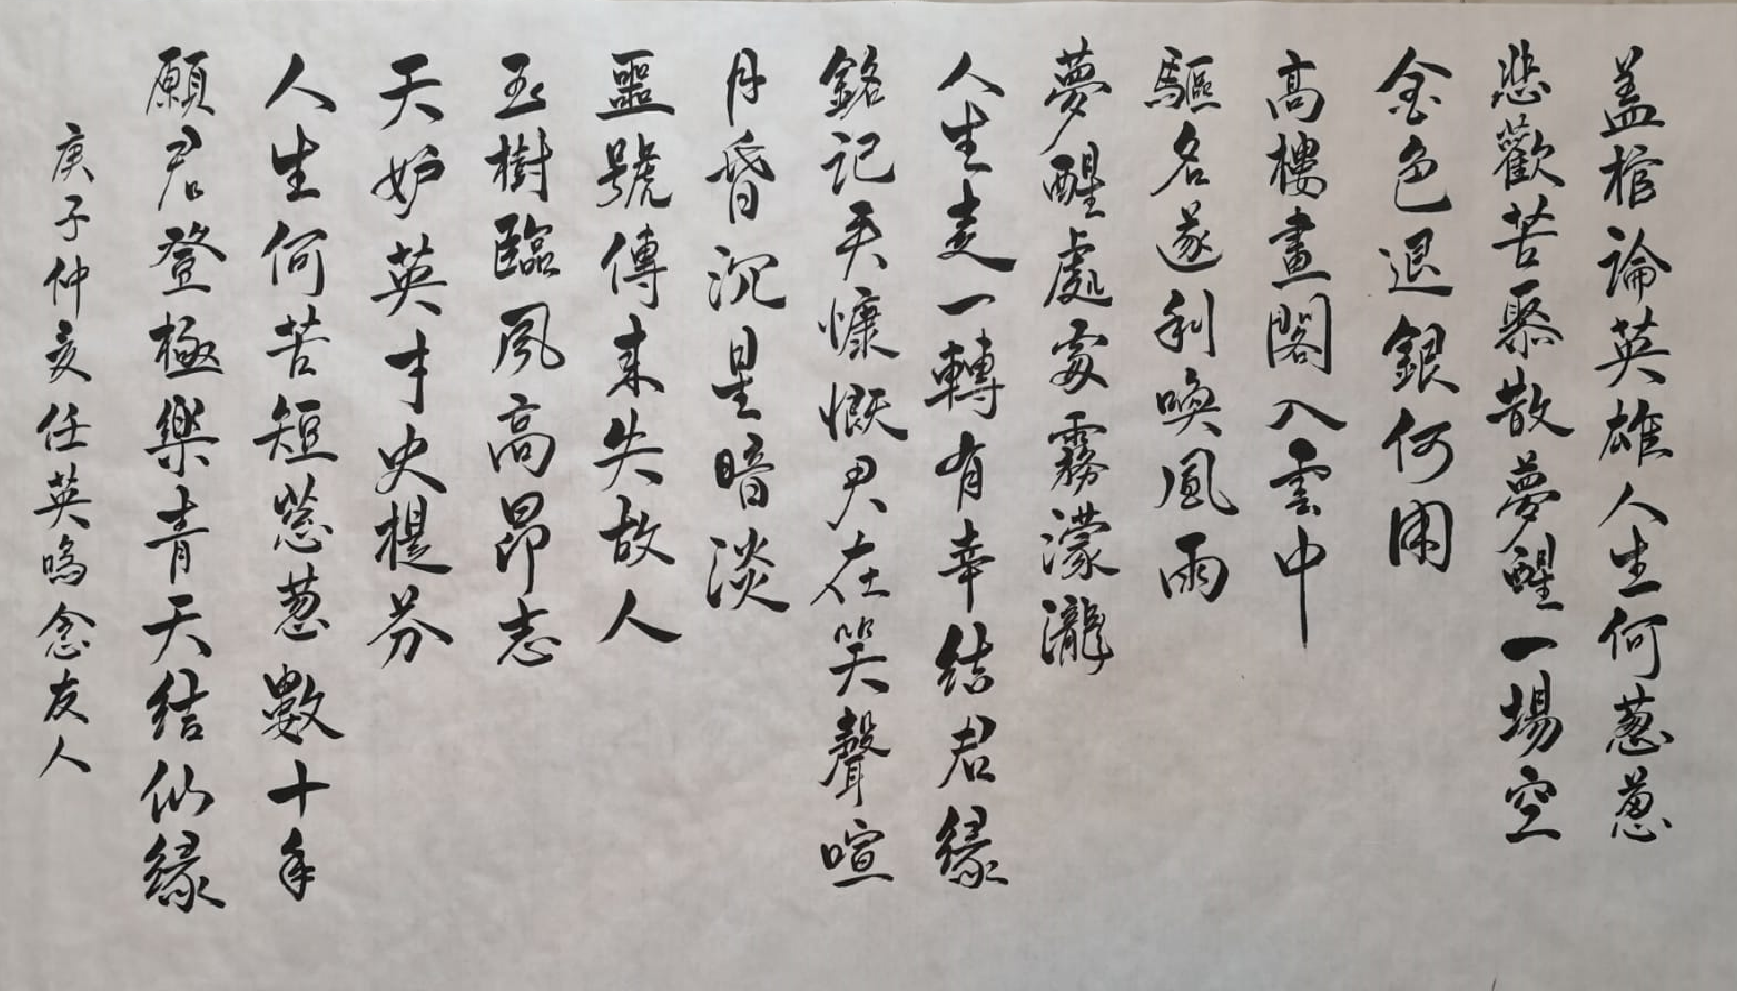 盖棺論英雄人生何葱葱
悲歡苦聚散夢醒一場空
金色退銀何用
高樓畫閣入雲中
驅名逐利喚風雨
夢醒處處霧濛瀧
人生走一轉有幸結君緣
銘記天慷慨君在笑聲喧
月昏沉星暗淡
噩號傳來失故人
玉樹臨風高昂志
天妒英才史提芬
人生何苦短葱葱數十年
願君登極樂青天結仙緣
庚子仲夏任英鳴念友人